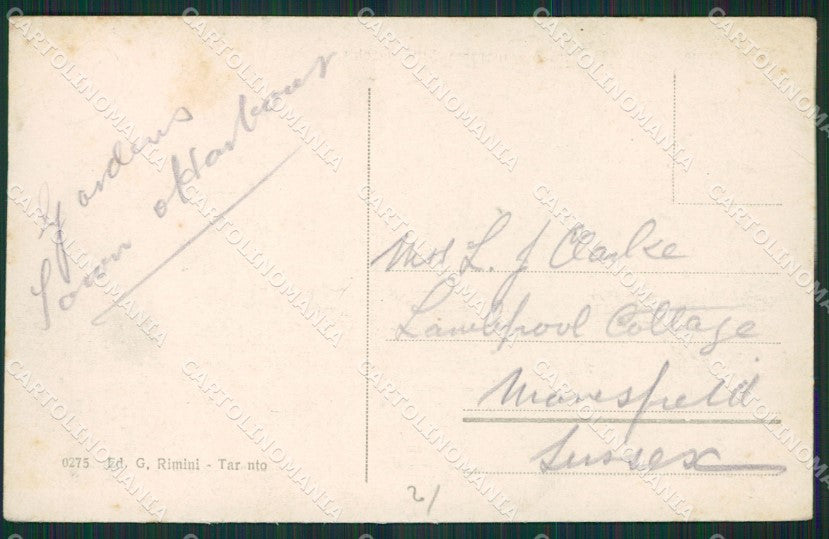 Gardens
Town Harbour
Mrs L. J Clarke
Lambpool Cottage
Maresfield
Sussex
0275 Ed. G. Rimini - Tar nto
2/
CARTOLINOMANIA